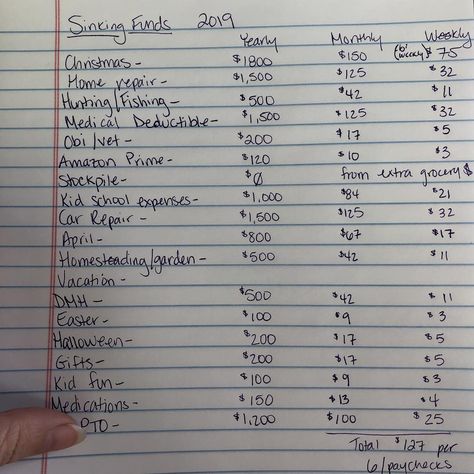 Sinking Funds 2019
Yearly Monthly (bi weekly) Weekly
Christmas - $1800 $150 $75
Home repair - $1,500 $125 $32
Hunting/Fishing - $500 $42 $11
Medical Deductible - $1,500 $125 $32
Obi/vet - $200 $17 $5
Amazon Prime - $120 $10 $3
Stockpile - $0 from extra grocery $
Kid school expenses - $1,000 $84 $21
Car Repair - $1,500 $125 $32
April - $800 $67 $17
Homesteading/garden - $500 $42 $11
Vacation -
DMH - $500 $42 $11
Easter - $100 $9 $3
Halloween - $200 $17 $5
Gifts - $200 $17 $5
Kid fun - $100 $9 $3
Medications - $150 $13 $4
PTO - $1,200 $100 $25
Total $127 per
paychecks